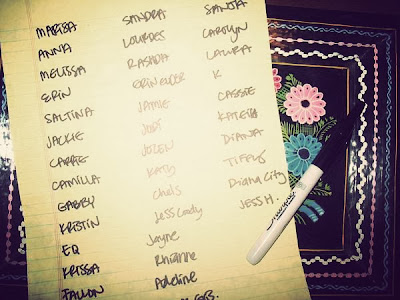 MARISA
ANNA
MELISSA
ERIN
SALTINA
JACKIE
CARRIE
CAMILLA
GABBY
KRISTIN
ED
KRISSA
FALLON
SANDRA
LOURDES
RASADA
JAMIE
JODI
JOLEN
KATY
Chels
Jess Cody
Jayne
Rhianne
Adeline
SANJA
CAROLYN
LAURA
K
CASSIE
KATEITA
DIANA
TIFFY
Diana City
JESS H.
Sharpie